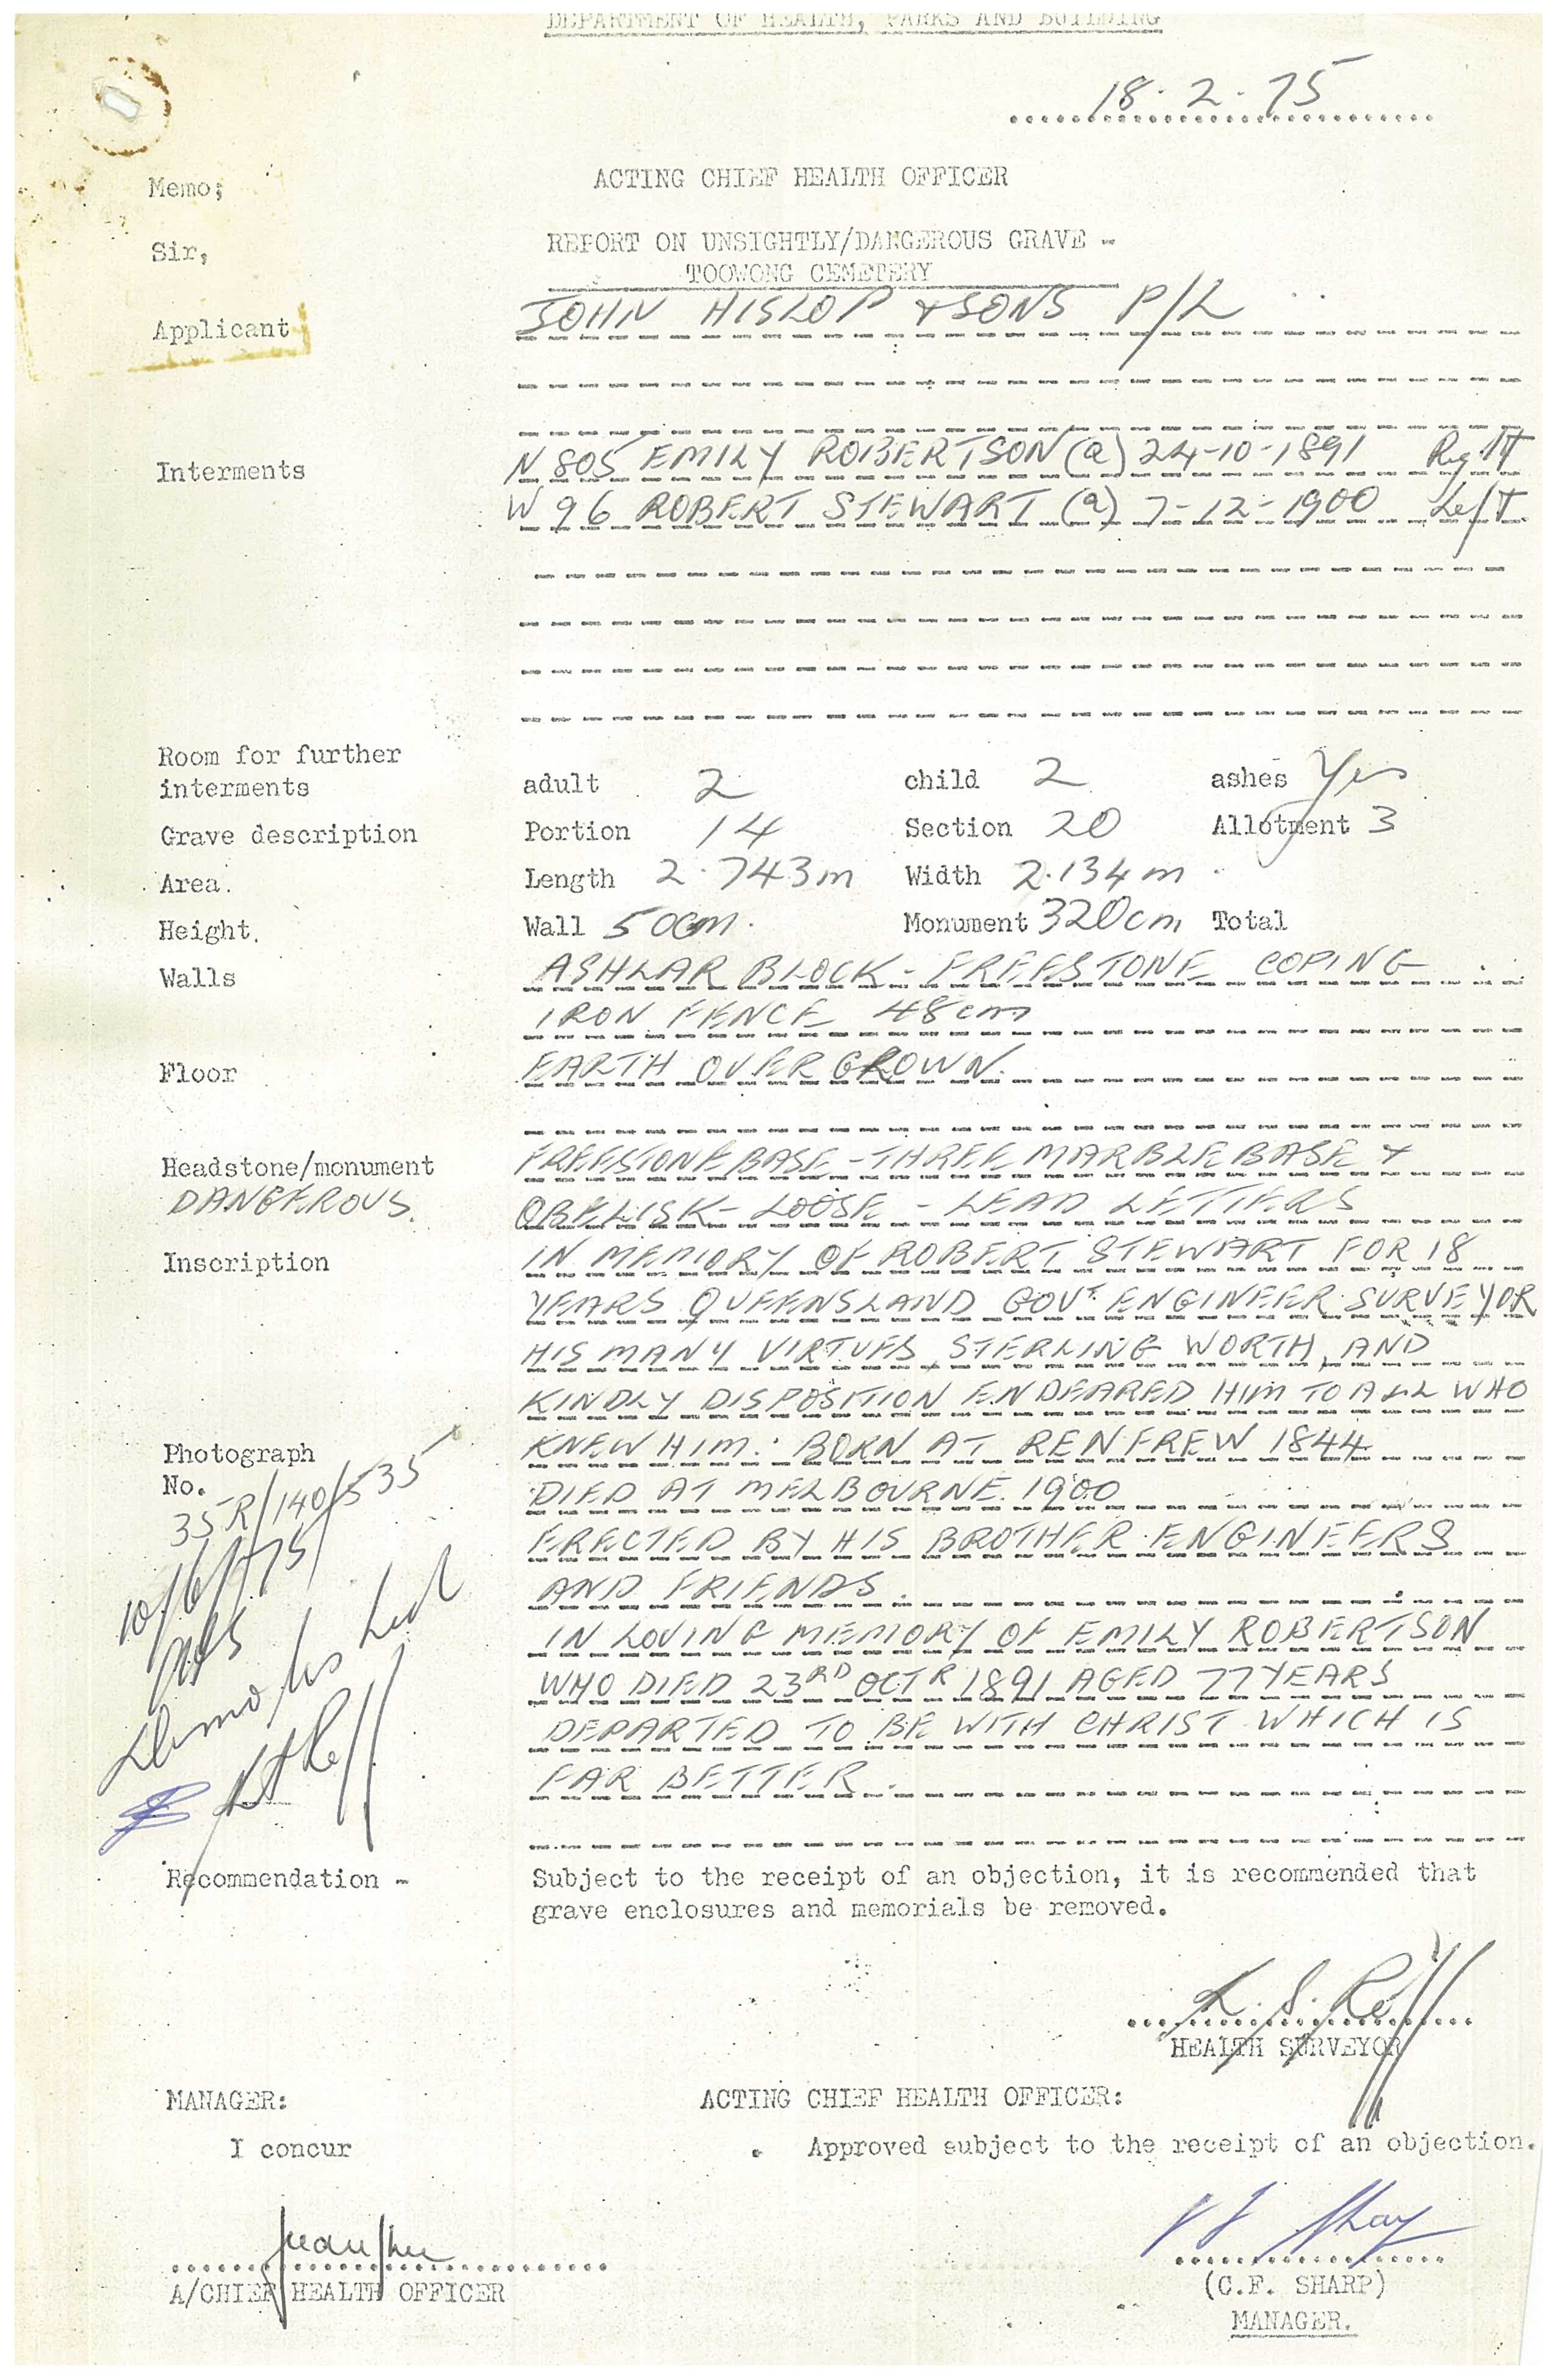 DEPARTMENT OF HEALTH, PARKS AND BUILDING
18.2.75
Memo; ACTING CHIEF HEALTH OFFICER
Sir, REPORT ON UNSIGHTLY/DANGEROUS GRAVE -
TOOWONG CEMETERY
Applicant JOHN HISLOP & SONS P/L
Interments N 805 EMILY ROBERTSON (a) 24-10-1891 Right
W 96 ROBERT STEWART (a) 7-12-1900 Left
Room for further
interments adult 2 child 2 ashes Yes
Grave description Portion 14 Section 20 Allotment 3
Area. Length 2.743m Width 2.134m
Height. Wall 50cm. Monument 320cm Total
Walls ASHLAR BLOCK - FREESTONE COPING
IRON FENCE 48cm
Floor EARTH OVERGROWN.
Headstone/monument FREESTONE BASE - THREE MARBLE BASE &
DANGEROUS. OBELISK - LOOSE - LEAD LETTERS
Inscription IN MEMORY OF ROBERT STEWART FOR 18
YEARS QUEENSLAND GOVT. ENGINEER SURVEYOR
HIS MANY VIRTUES, STERLING WORTH, AND
KINDLY DISPOSITION ENDEARED HIM TO ALL WHO
Photograph KNEW HIM. BORN AT RENFREW 1844.
No. DIED AT MELBOURNE. 1900
35R/140/535 ERECTED BY HIS BROTHER ENGINEERS
10/6/75 AND FRIENDS.
IN LOVING MEMORY OF EMILY ROBERTSON
WHO DIED 23RD OCTR 1891 AGED 77 YEARS
DEPARTED TO BE WITH CHRIST WHICH IS
FAR BETTER.
Recommendation - Subject to the receipt of an objection, it is recommended that
grave enclosures and memorials be removed.
HEALTH SURVEYOR
MANAGER: ACTING CHIEF HEALTH OFFICER:
I concur Approved subject to the receipt of an objection.
A/CHIEF HEALTH OFFICER (C.F. SHARP)
MANAGER.